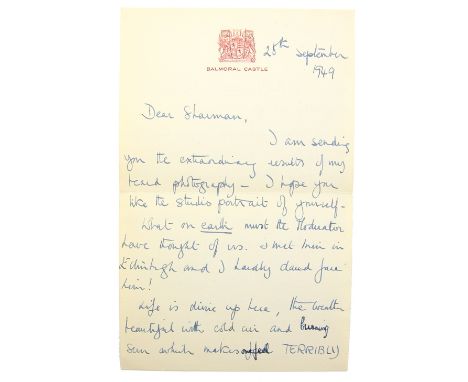 BALMORAL CASTLE
25th September
1949
Dear Sharman,
I am sending
you the extraordinary results of my
photography - I hope you
like the studio portrait of yourself -
What on earth must the Moderator
have thought of us. I met him in
Edinburgh and I hardly dared face
him!
Life is divine up here, the weather
beautiful with cold air and burning
sun which makes TERRIBLY